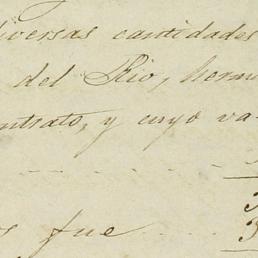 diversas cantidades
del Rio, herm
ontrato, y cuyo va-
fue
3